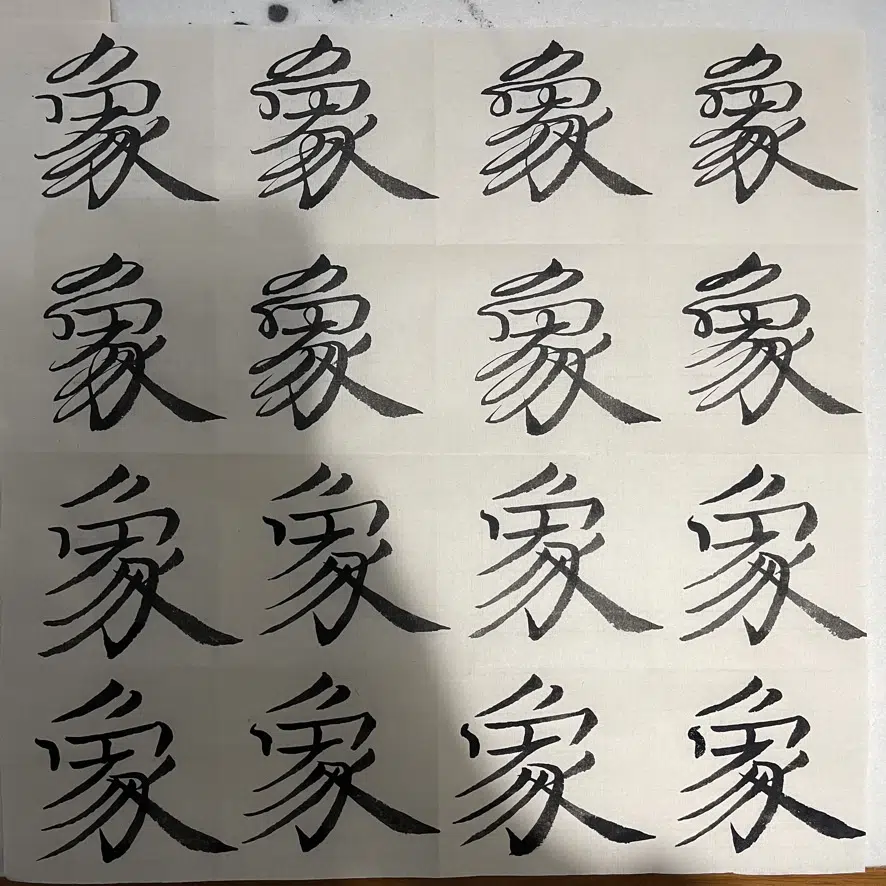 象象象象
象象象象
象象象象
象象象象